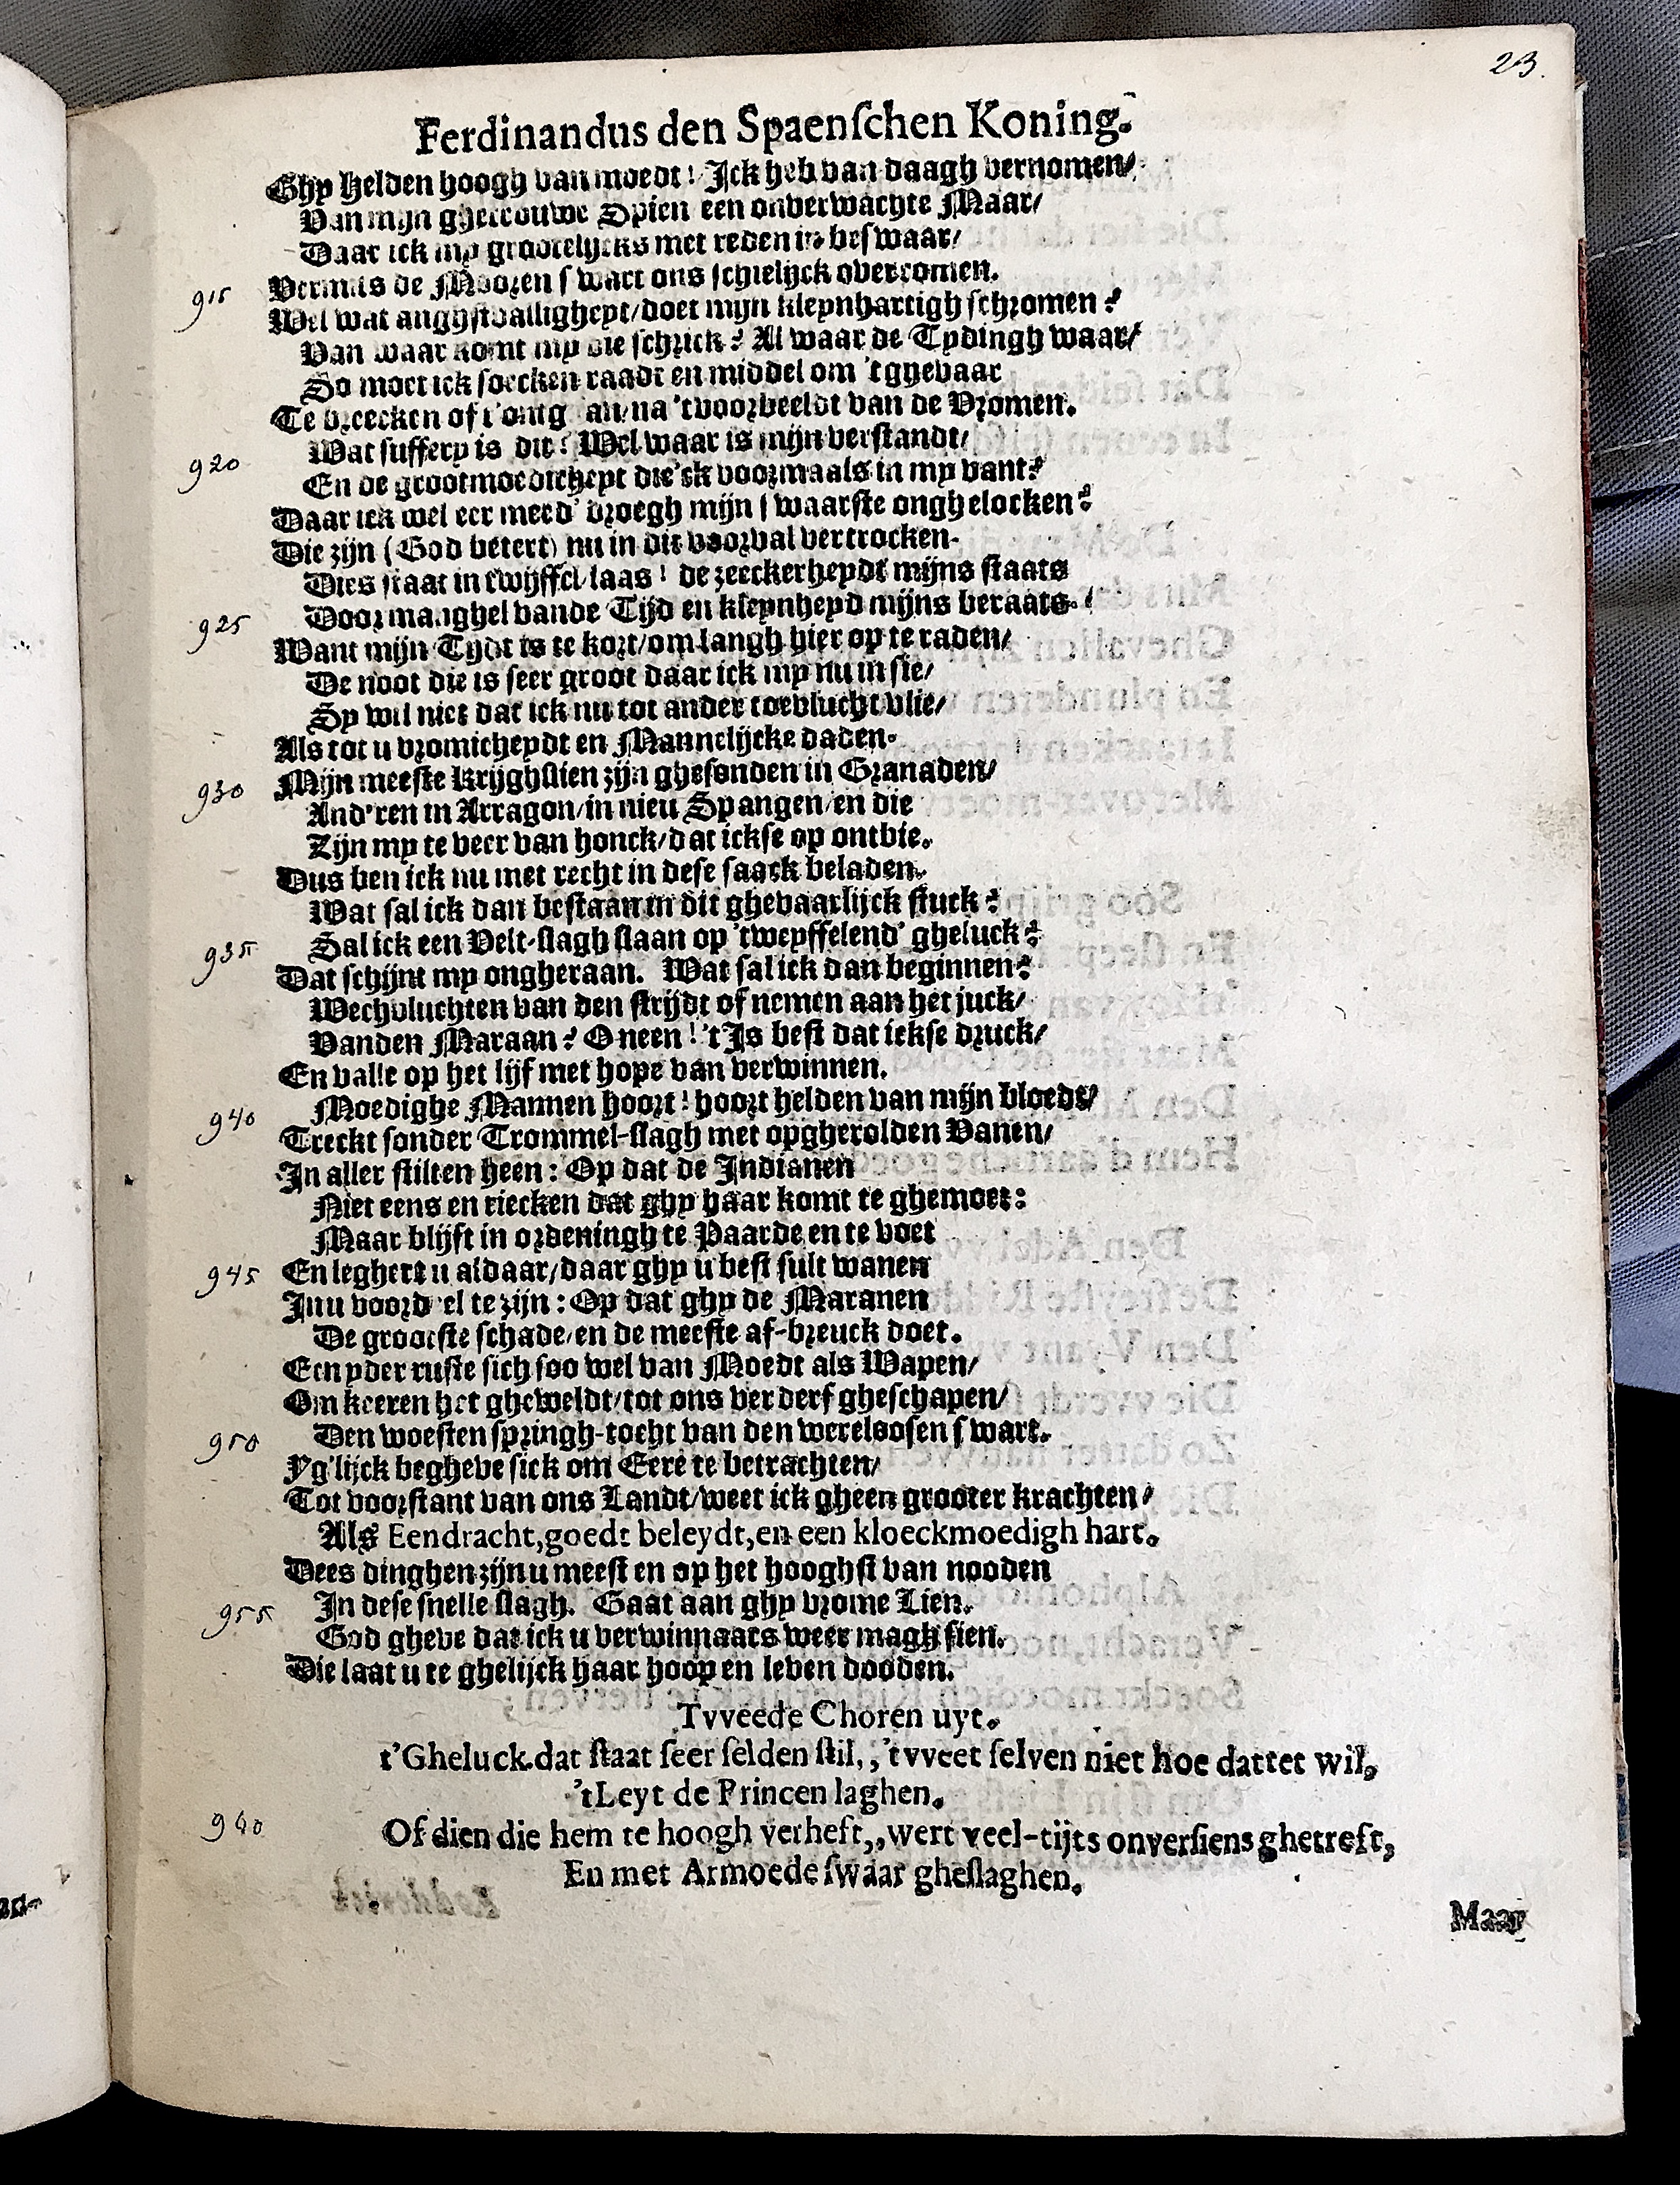 23.
Ferdinandus den Spaenſchen Koning.
Ghy Helden hoogh van moedt! Ick heb van daagh vernomen/
Van mijn ghetrouwe Spien een onverwachte Maar/
Daar ick my grootelijcks met reden in beſwaar/
Vermits de Mooren ſwart ons ſchielijck overromen.
915 Wel wat anghſtvalligheyt/doet mijn kleynhartigh ſchromen?
Van waar komt my die ſchrick? Al waar de Tydingh waar/
So moet ick ſoecken raadt en middel om 'tghevaar
Te breecken of t'ontg an/na 'tvoorbeeldt van de Vromen.
Wat ſuffery is dit? Wel waar is mijn verſtandt/
920 En de grootmoedicheyt die'ck voormaals in my vant?
Daar ick wel eer meed' droegh mijn ſwaarſte onghelocken?
Die zijn (God betert) nu in dit voorval vertrocken.
Dies ſtaat in twijffel/laas! de zeeckerheydt mijns ſtaats
Door manghel vande Tijd en kleynheyd mijns beraats.
925 Want mijn Tydt is te kort/om langh hier op te raden/
De noot die is ſeer groot daar ick my nu in ſie/
Sy wil niet dat ick nu tot ander toevlucht vlie/
Als tot u vromicheydt en Mannelijcke daden.
Mijn meeſte Krijghſlien zijn gheſonden in Granaden/
930 And'ren in Arragon/in nieu Spangen/en die
Zijn my te veer van honck/dat ickſe op ontbie.
Dus ben ick nu met recht in deſe ſaack beladen.
Wat ſal ick dan beſtaan in dit ghevaarlijck ſtuck?
Sal ick een Velt-ſlagh ſlaan op 'tweyffelend' gheluck?
935 Dat ſchijnt my ongheraan. Wat ſal ick dan beginnen?
Wechvluchten van den ſtrijdt of nemen aan het juck/
Vanden Maraan? O neen! 't Is beſt dat ickſe druck/
En valle op het lijf met hope van verwinnen.
Moedighe Mannen hoort! hoort helden van mijn bloedt/
940 Treckt ſonder Trommel-ſlagh met opgherolden Vanen/
In aller ſtilten heen: Op dat de Indianen
Niet eens en riecken dat ghy haar komt te ghemoet:
Maar blijft in ordeningh te Paarde en te voet
945 En leghert u aldaar/daar ghy u beſt ſult wanen
In u voord'el te zijn: Op dat ghy de Maranen
De grootſte ſchade/en de meeſte af-breuck doet.
Een yder ruſte ſich ſoo wel van Moedt als Wapen/
Om keeren het gheweldt/tot ons verderf gheſchapen/
950 Den woeſten ſpringh-tocht van den wereloosen ſwart.
Yg'lijck begheve ſick om Eere te betrachten/
Tot voorſtant van ons Landt/weet ick gheen grooter krachten/
Als Eendracht, goedt beleydt, en een kloeckmoedigh hart.
Dees dinghen zijn u meeſt en op het hooghſt van nooden
955 In deſe ſnelle ſlagh. Gaat aan ghy vrome Lien.
God gheve dat ick u verwinnaars weer magh ſien.
Die laat u te ghelijck haar hoop en leven dooden.
Tvveede Choren uyt.
t'Gheluck dat ſtaat ſeer ſelden ſtil,,'tvveet ſelven niet hoe dattet wil,
'tLeyt de Princen laghen.
960 Of dien die hem te hoogh verheft,,wert veel-tijts onverſiens ghetreft,
En met Armoede ſwaar gheſlaghen.
Maar